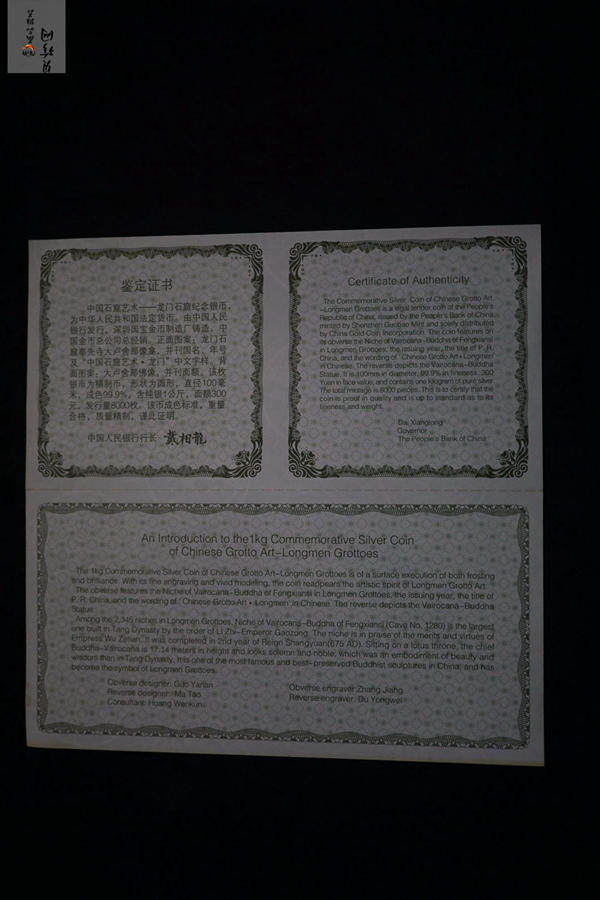 鉴定证书
中国石窟艺术——龙门石窟纪念银币，
为中华人民共和国法定货币。由中国人民
银行发行，深圳国宝金币制造厂铸造，中
国金币总公司总经销。正面图案：龙门石
窟奉先寺大卢舍那像龛，并刊国名、年号
及“中国石窟艺术·龙门”中文字样。背
面图案：大卢舍那佛像，并刊面额。该枚
银币为精制币，形状为圆形，直径100毫
米，成色99.9%，含纯银1公斤，面额300
元，发行量8000枚。该币成色标准，重量
合格，质量精制，谨此证明。
中国人民银行行长 戴相龙
Certificate of Authenticity
The Commemorative Silver Coin of Chinese Grotto Art
-Longmen Grottoes is a legal tender coin of the People's
Republic of China, issued by the People's Bank of China,
minted by Shenzhen Guobao Mint and solely distributed
by China Gold Coin Incorporation. The coin features on
its obverse the Niche of Vairocana-Buddha of Fengxiansi
in Longmen Grottoes, the issuing year, the title of P. R.
China, and the wording of "Chinese Grotto Art • Longmen"
in Chinese. The reverse depicts the Vairocana-Buddha
Statue. It is 100mm in diameter, 99.9% in fineness, 300
Yuan in face value, and contains one kilogram of pure silver.
The total mintage is 8000 pieces. This is to certify that the
coin is proof in quality and is up to standard as to its
fineness and weight.
Dai Xianglong
Governor
The People's Bank of China
An Introduction to the 1kg Commemorative Silver Coin
of Chinese Grotto Art-Longmen Grottoes
The 1kg Commemorative Silver Coin of Chinese Grotto Art-Longmen Grottoes is of a surface execution of both frosting
and brilliance. With its fine engraving and vivid modelling, the coin reappears the artistic spirit of Longmen Grotto Art.
The obverse features the Niche of Vairocana-Buddha of Fengxiansi in Longmen Grottoes, the issuing year, the title of
P. R. China, and the wording of "Chinese Grotto Art • Longmen" in Chinese. The reverse depicts the Vairocana-Buddha
Statue.
Among the 2,345 niches in Longmen Grottoes, Niche of Vairocana-Buddha of Fengxiansi (Cave No. 1280) is the largest
one built in Tang Dynasty by the order of Li Zhi-Emperor Gaozong. The niche is in praise of the merits and virtues of
Empress Wu Zetian. It was completed in 2nd year of Reign Shangyuan(675 AD). Sitting on a lotus throne, the chief
Buddha-Vairocana is 17.14 meters in height and looks solemn and noble, which was an embodiment of beauty and
wisdom then in Tang Dynasty. It is one of the most famous and best-preserved Buddhist sculptures in China, and has
become the symbol of Longmen Grottoes.
Obverse designer: Guo Yanlan
Reverse designer: Ma Tao
Consultant: Huang Wenkun
Obverse engraver: Zhang Jiang
Reverse engraver: Du Yongwei